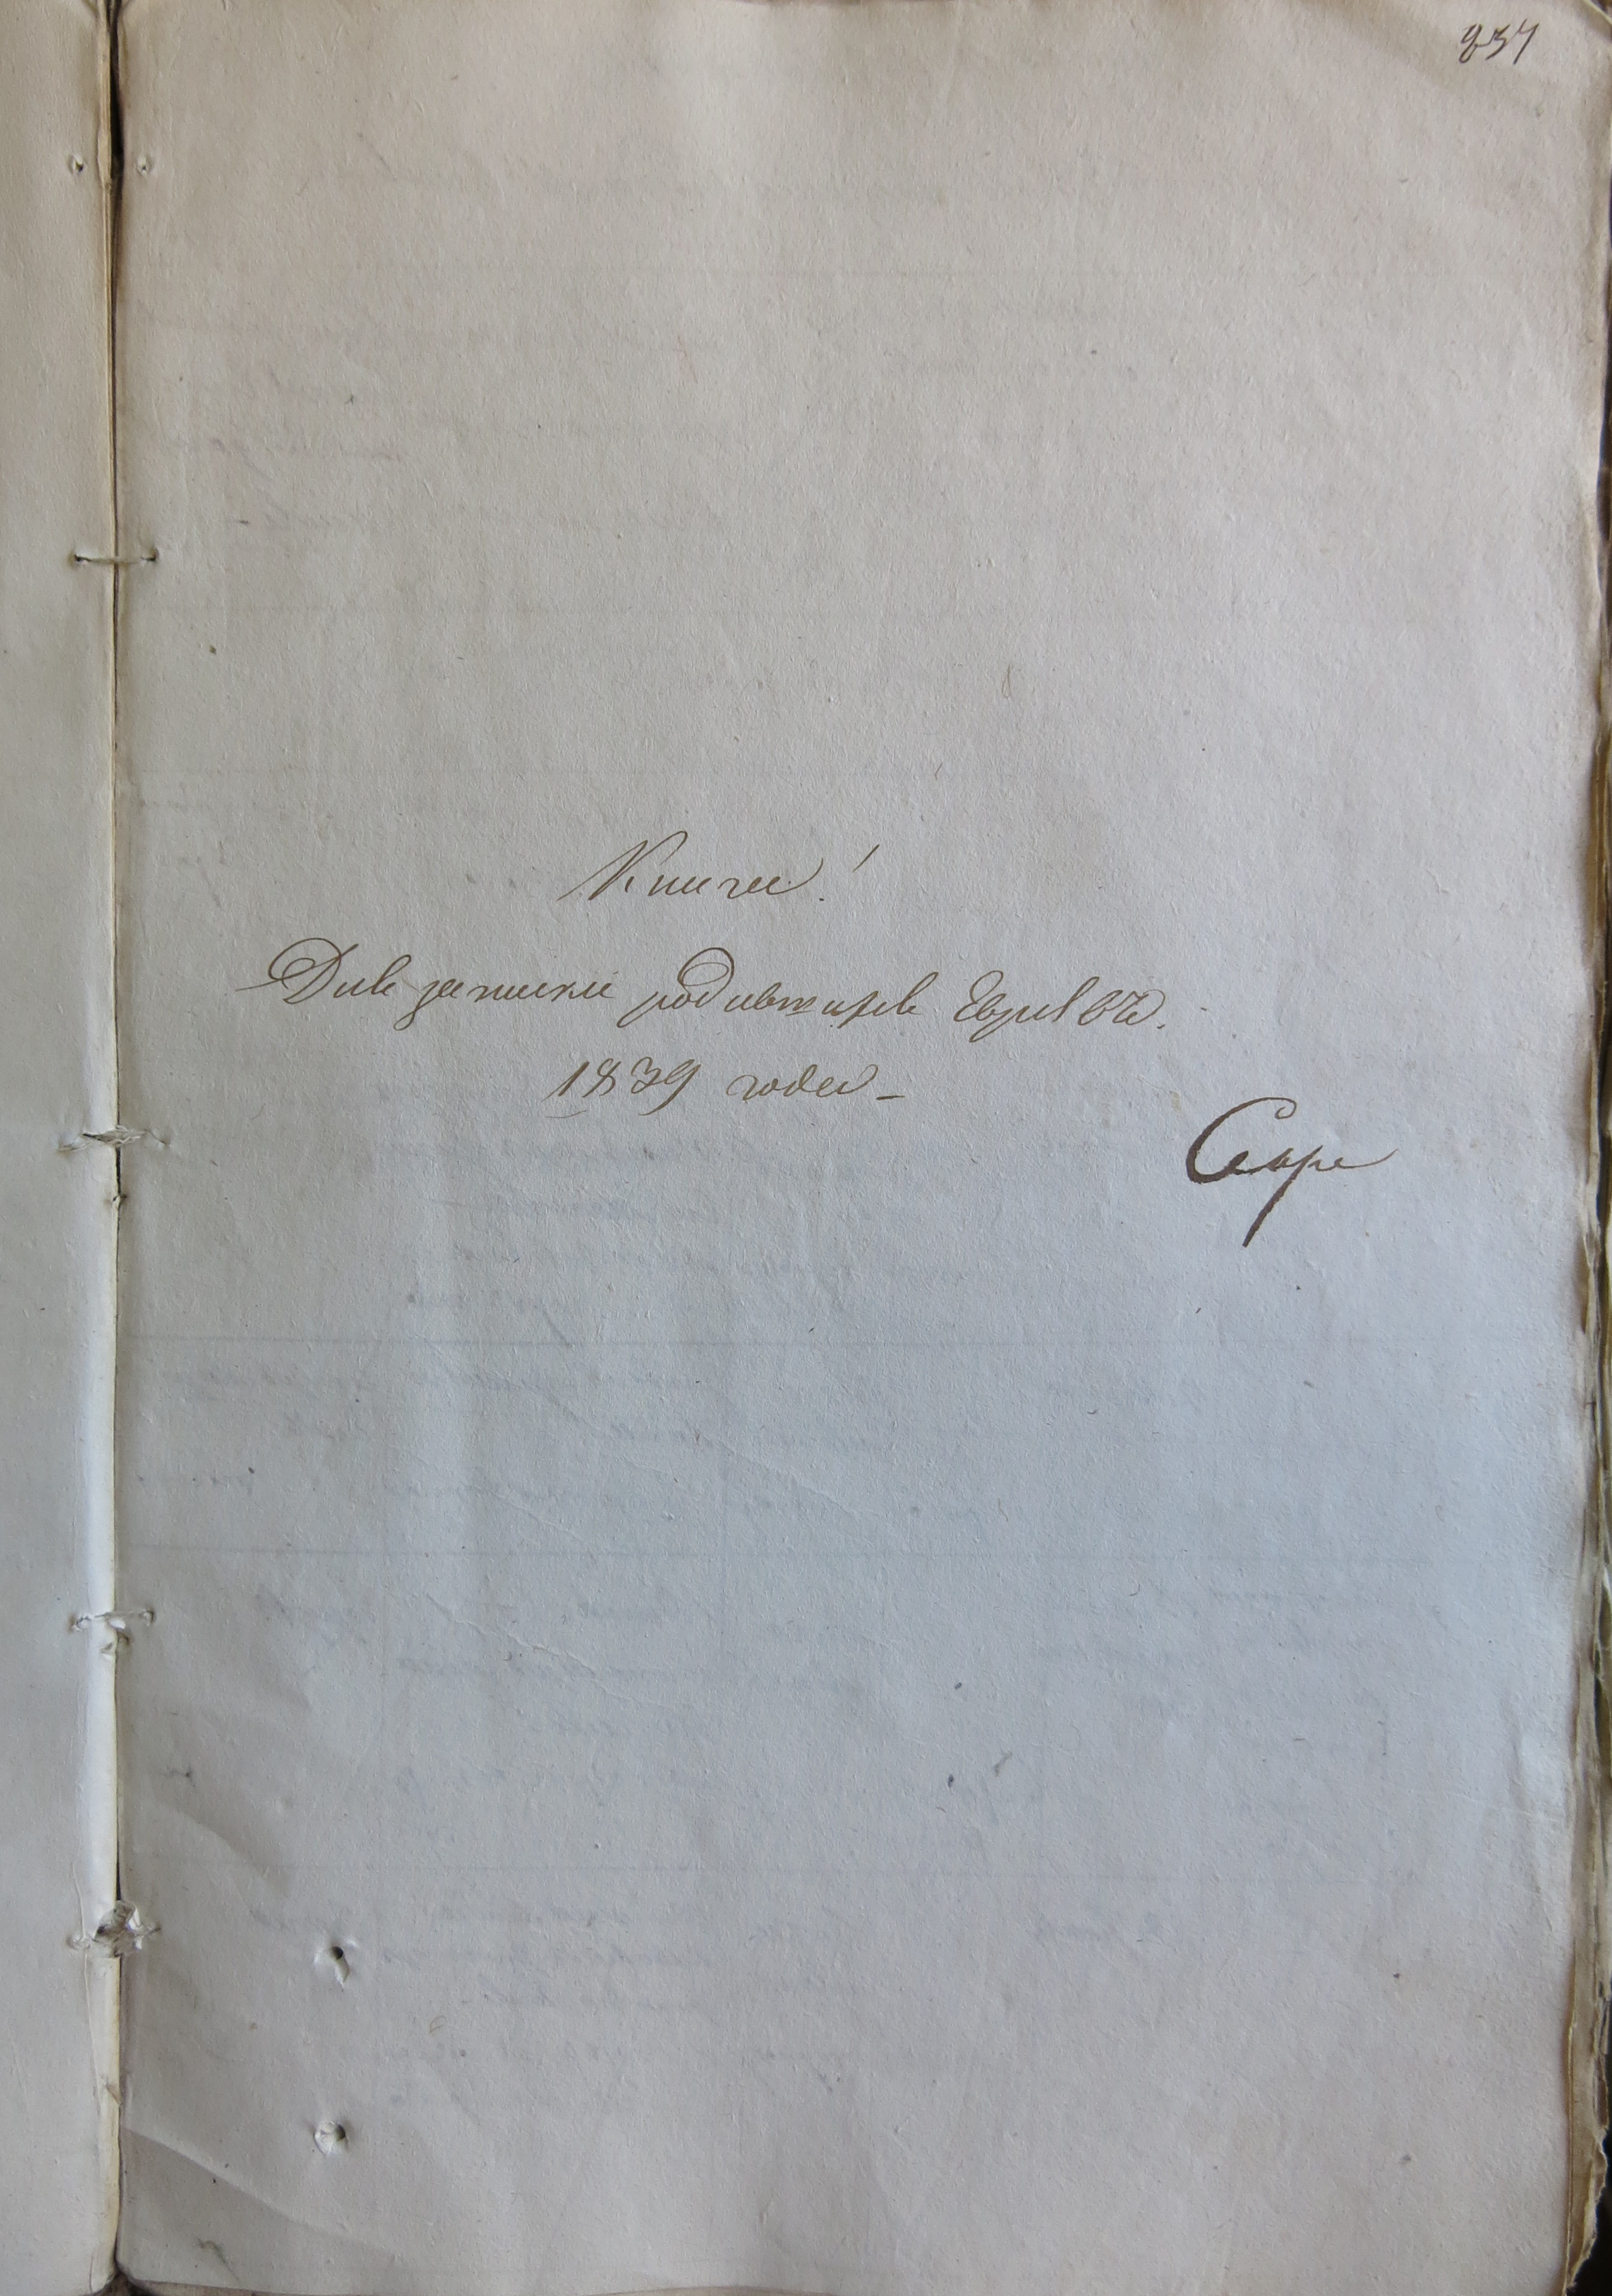 837
Книга!
Для записки родившихся Евреевъ.
1839 года –